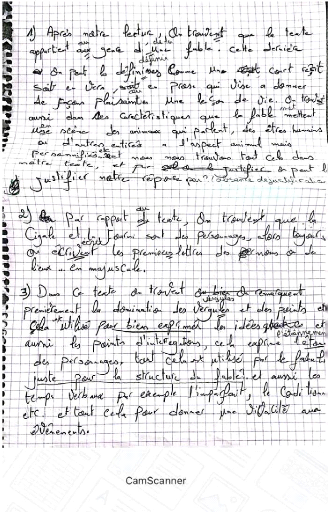 1) Après notre lecture, On trouvent que le texte
appartient au genre d'une fable. Cette dernière
On peut la définisses Comme une court récit
soit en vers, soit en prose qui vise a donner
de façon plaisantin Une leçon de vie. On trouve
aussi dans des caractéristiques que la fable mettent
une scène des animaux qui parlent, des êtres humains
ou d'autres entités a l'aspect animal mais
personnifiés. et nous nous trouvons tout cela dans
notre texte, et par
justifier notre réponse par
2) Par rapport du texte, On trouvent que la
Cigale et la fourmi sont des personnages, alors toujours,
on écrivent les premières lettres des noms ou de
lieux .. En majuscule.
3) Dans Ce texte on trouvent remarquent
premièrement la domination des virgules et des points et
Cela utilisé pour bien exprimer les idées et
aussi les points d'interogations, cela exprime
des personnages, tout cela est utilisé par le fabuliste
juste pour la structure du fable. et aussi les
temps verbaux par exemple l'imparfait, le Conditionn
etc et tout cela pour donner une aux
évènements.
CamScanner